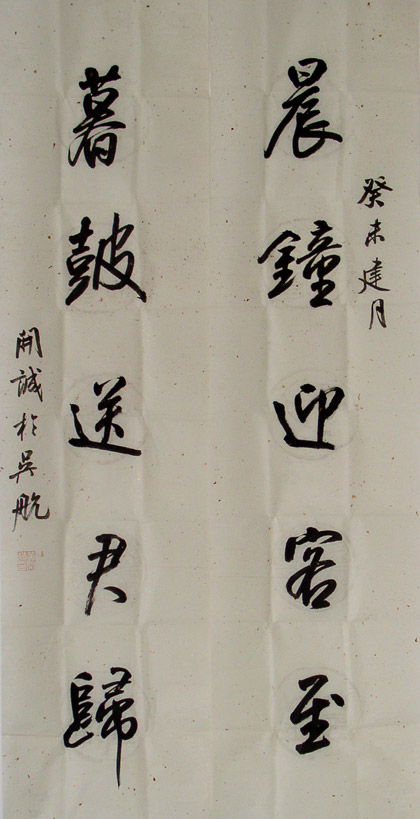 癸未建月
晨鐘迎客至
暮皷送君歸
開誠於吳航